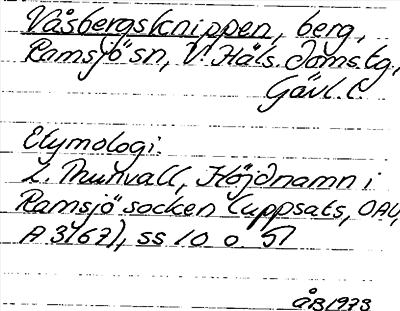 Våsbergsknippen, berg,
Ramsjö sn, V. Häls. doms.tg,
Gävl. l.
Etymologi:
L. Thunvall, Höjdnamn i
Ramsjö socken (uppsats, OAU,
A 3167), ss 10 o. 51
ÅB 1973